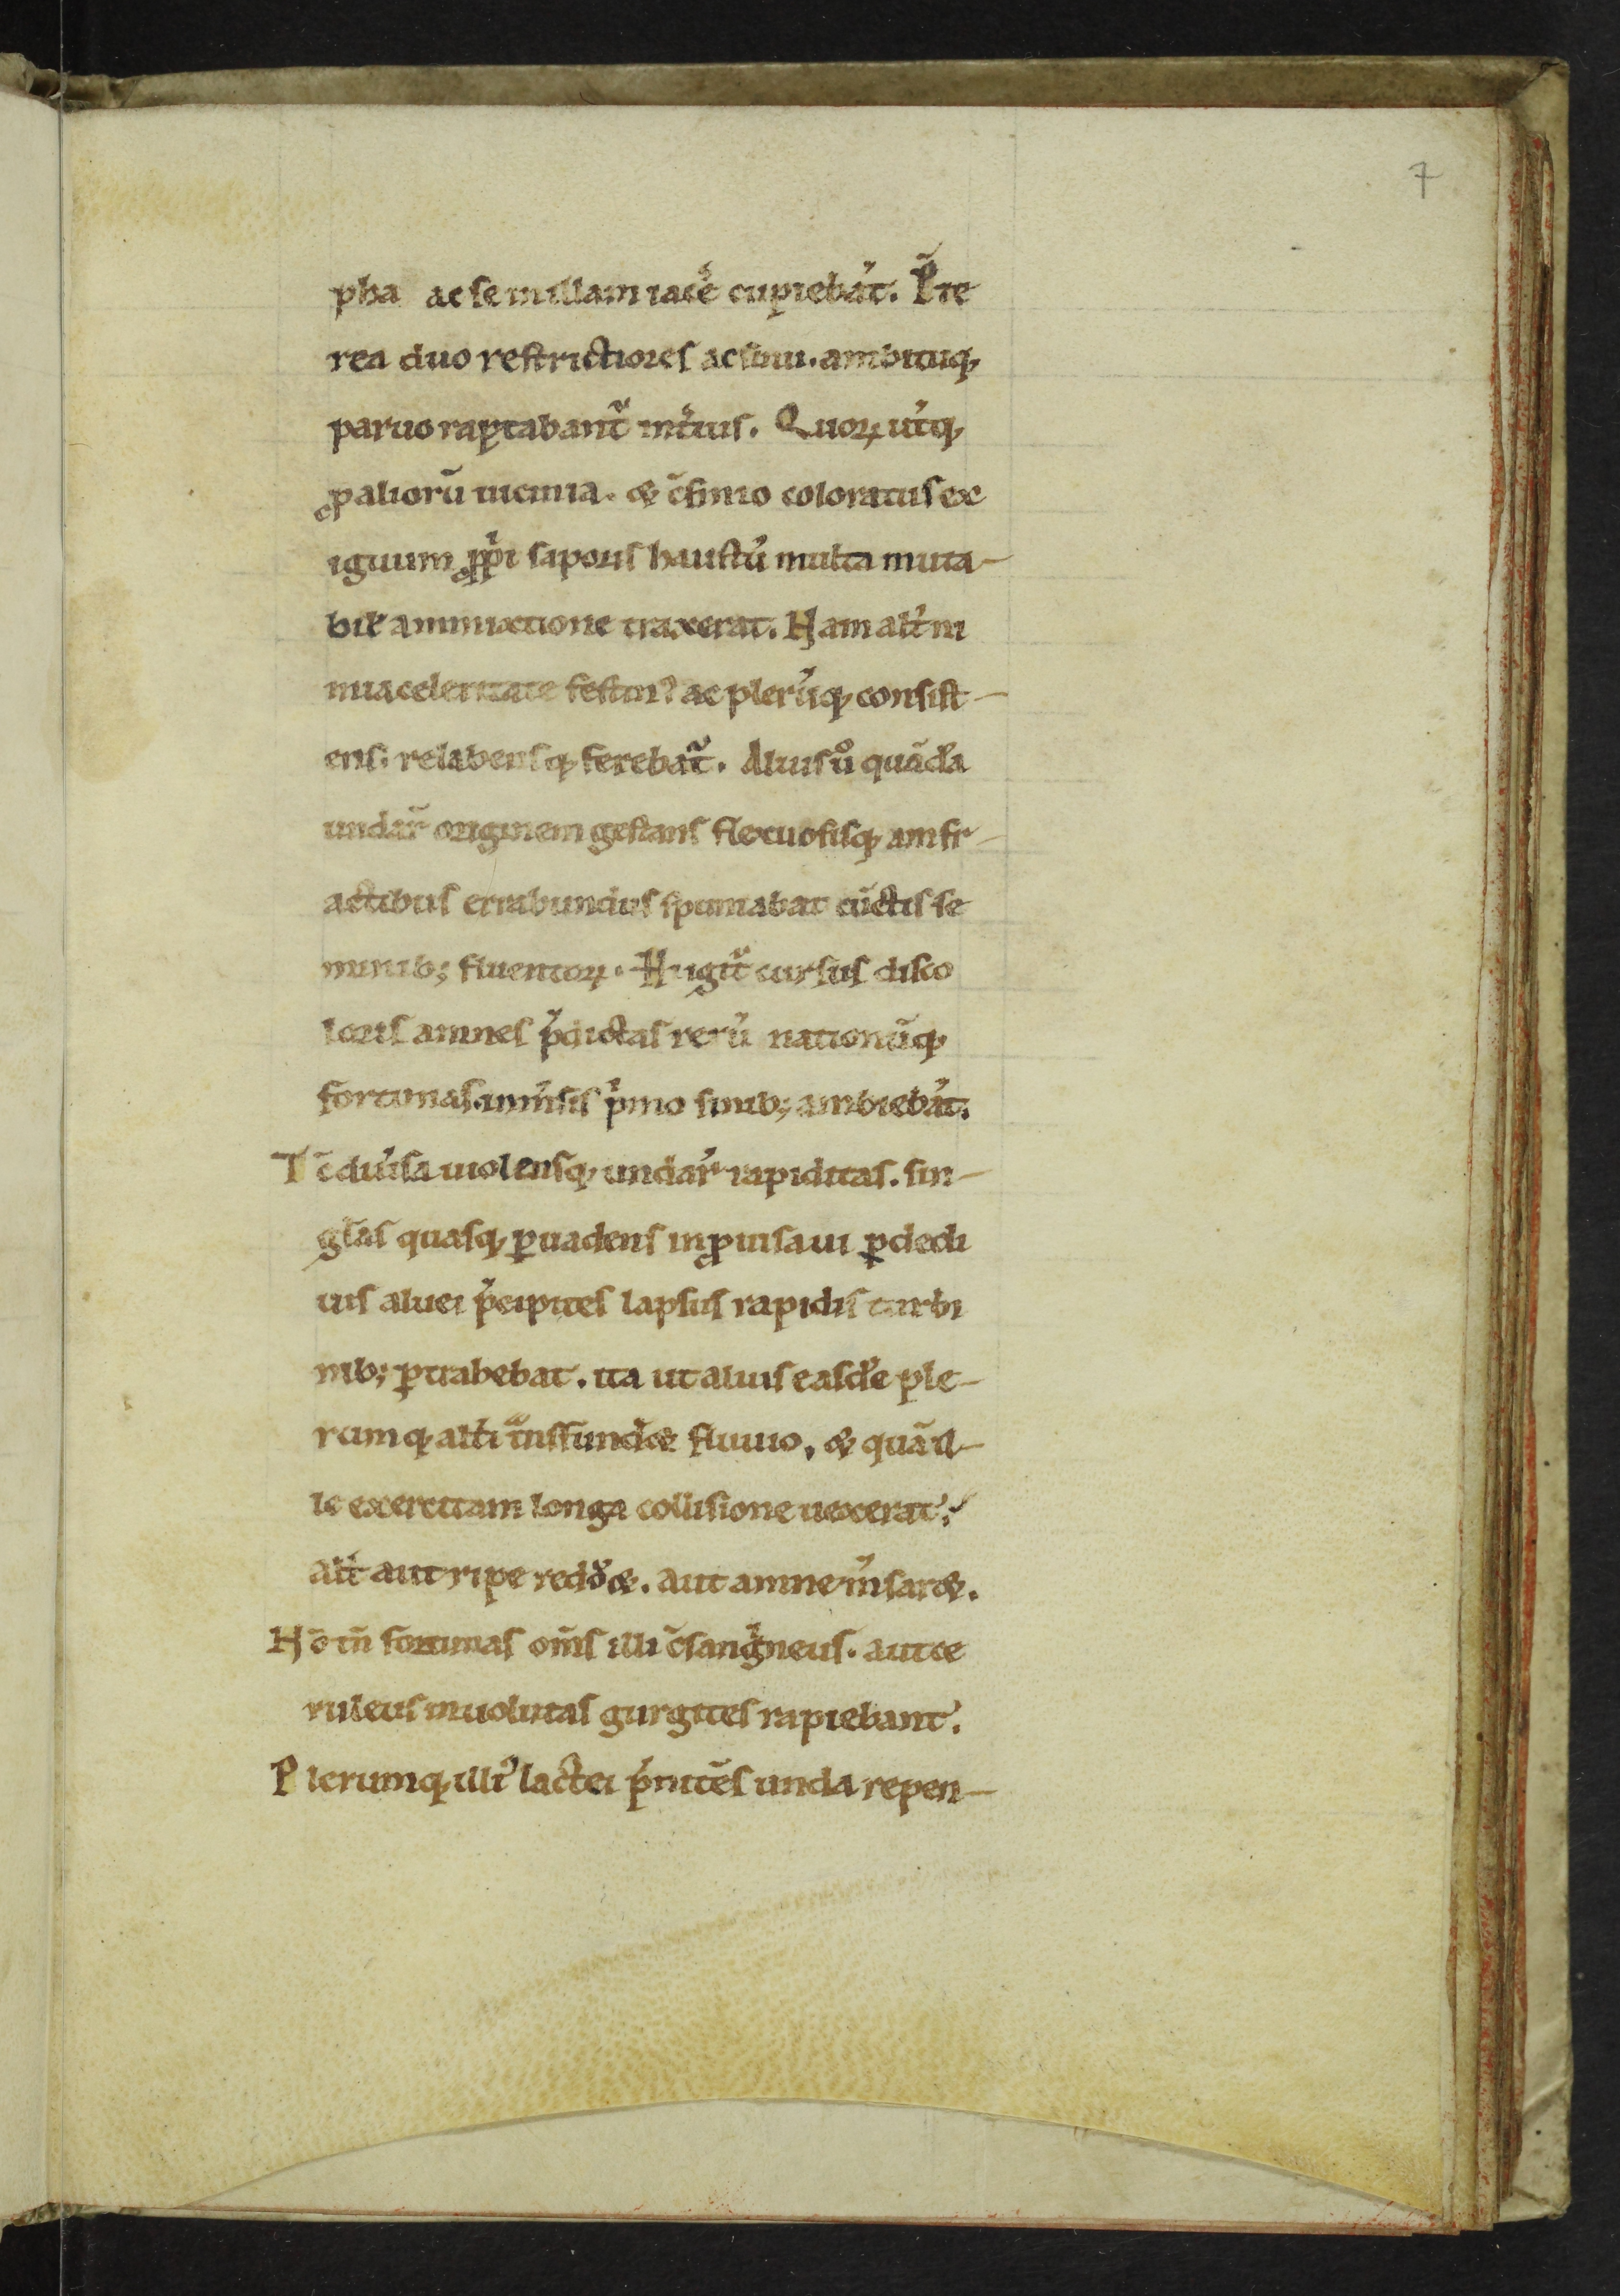 7
pha ac se in illam iacẽ cupiebãt. P̃te
rea duo restrictiores ac sinu. ambituq;
paruo raptabant᷑ int̾ius. Quoꝝ ut̾q;
ꝓ aliorũ uicinia. & c̃finio coloratus ex
iguum ꝓpͥi saporis haustũ multa muta-
bilẽ ammixtione traxerat. Nam alt̾ ni
mia celeritate festinꝰ ac plerũq; consist-
ens. relabensq; ferebat᷑. Alius ů quãda
undaꝝ originem gestans flexuosisq; anfr-
actibus errabundus spumabat cũctis se
minib; fluentoꝝ. Hi igit᷑ cursus disco
loris amnes p̃dictas rerũ nationũq;
fortunas. imm̾sis pͥmo sinib; ambiebãt.
Tc̃ diu̾sa uiolensq; undaꝝ rapiditas. sin-
gl̃as quasq; ꝑuadens inꝓuisa ui ꝑ decli
uis aluei p̃cipites lapsus rapidis turbi
nib; ꝑtrahebat. ita ut aliuis easdẽ ple-
rumq; alt̾i t̃nsfundet̾ fluuio. & quã il-
le exercitam longa collisione uexerat.
alt̾ aut ripe redd̾&. aut amne m̾sar&.
Nõ tñ fortunas om̃s illi c̃sangͥneus. aut ce
ruleus inuolutas gurgites rapiebant.
Plerumq; illiꝰ lactei p̃nitẽs unda repen-